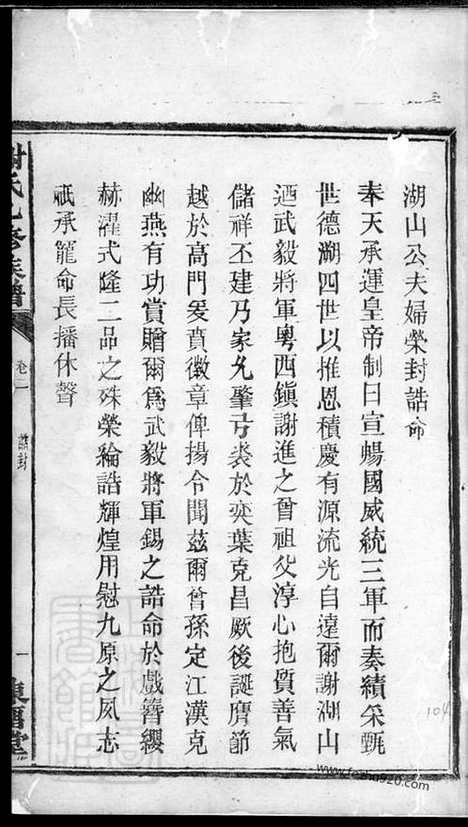 湖山公夫婦榮封誥命
奉天承運皇帝制曰宣暢國威統三軍而奏績采甄
世德溯四世以推恩積慶有源流光自遠爾謝湖山
迺武毅將軍粵西鎮謝進之曾祖父淳心抱質善氣
儲祥丕建乃家允肇弓裘於奕葉克昌厥後誕膺節
越於高門爰賁徽章俾揚令聞茲爾曾孫定江漢克
幽燕有功賞贈爾為武毅將軍錫之誥命於戲簪纓
赫濯式隆二品之殊榮綸誥輝煌用慰九原之夙志
祇承寵命長播休聲
謝氏七修族譜
卷一
誥封
一
東酉堂
104
www.fozhu920.com